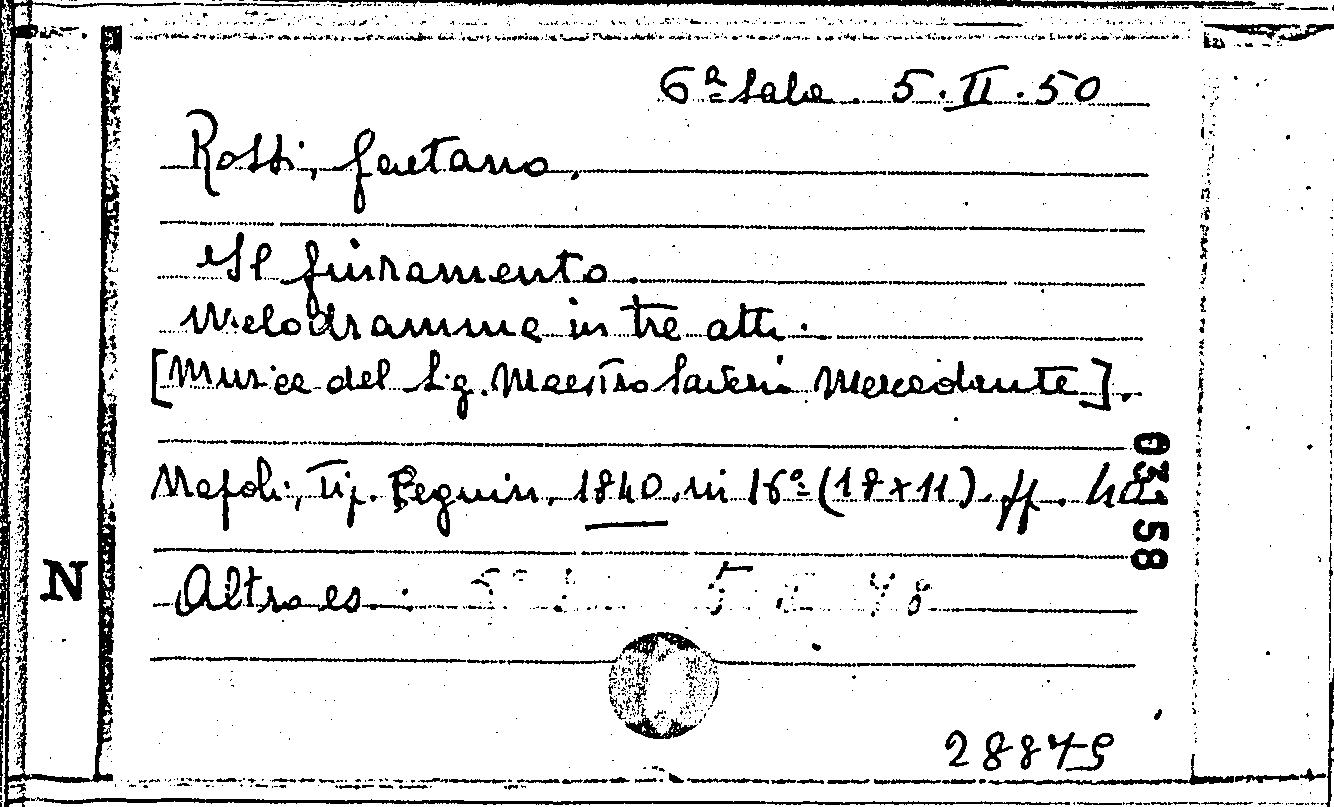 6ª Sala. 5.II.50
Rossi, Gaetano.
Il giuramento.
Melodramma in tre atti.
[Musica del Sig. Maestro Saverio Mercadante].
Napoli, Tip. Seguin, 1840. in 16º (18x11). pp. 40
03158
N
Altro es.
28879